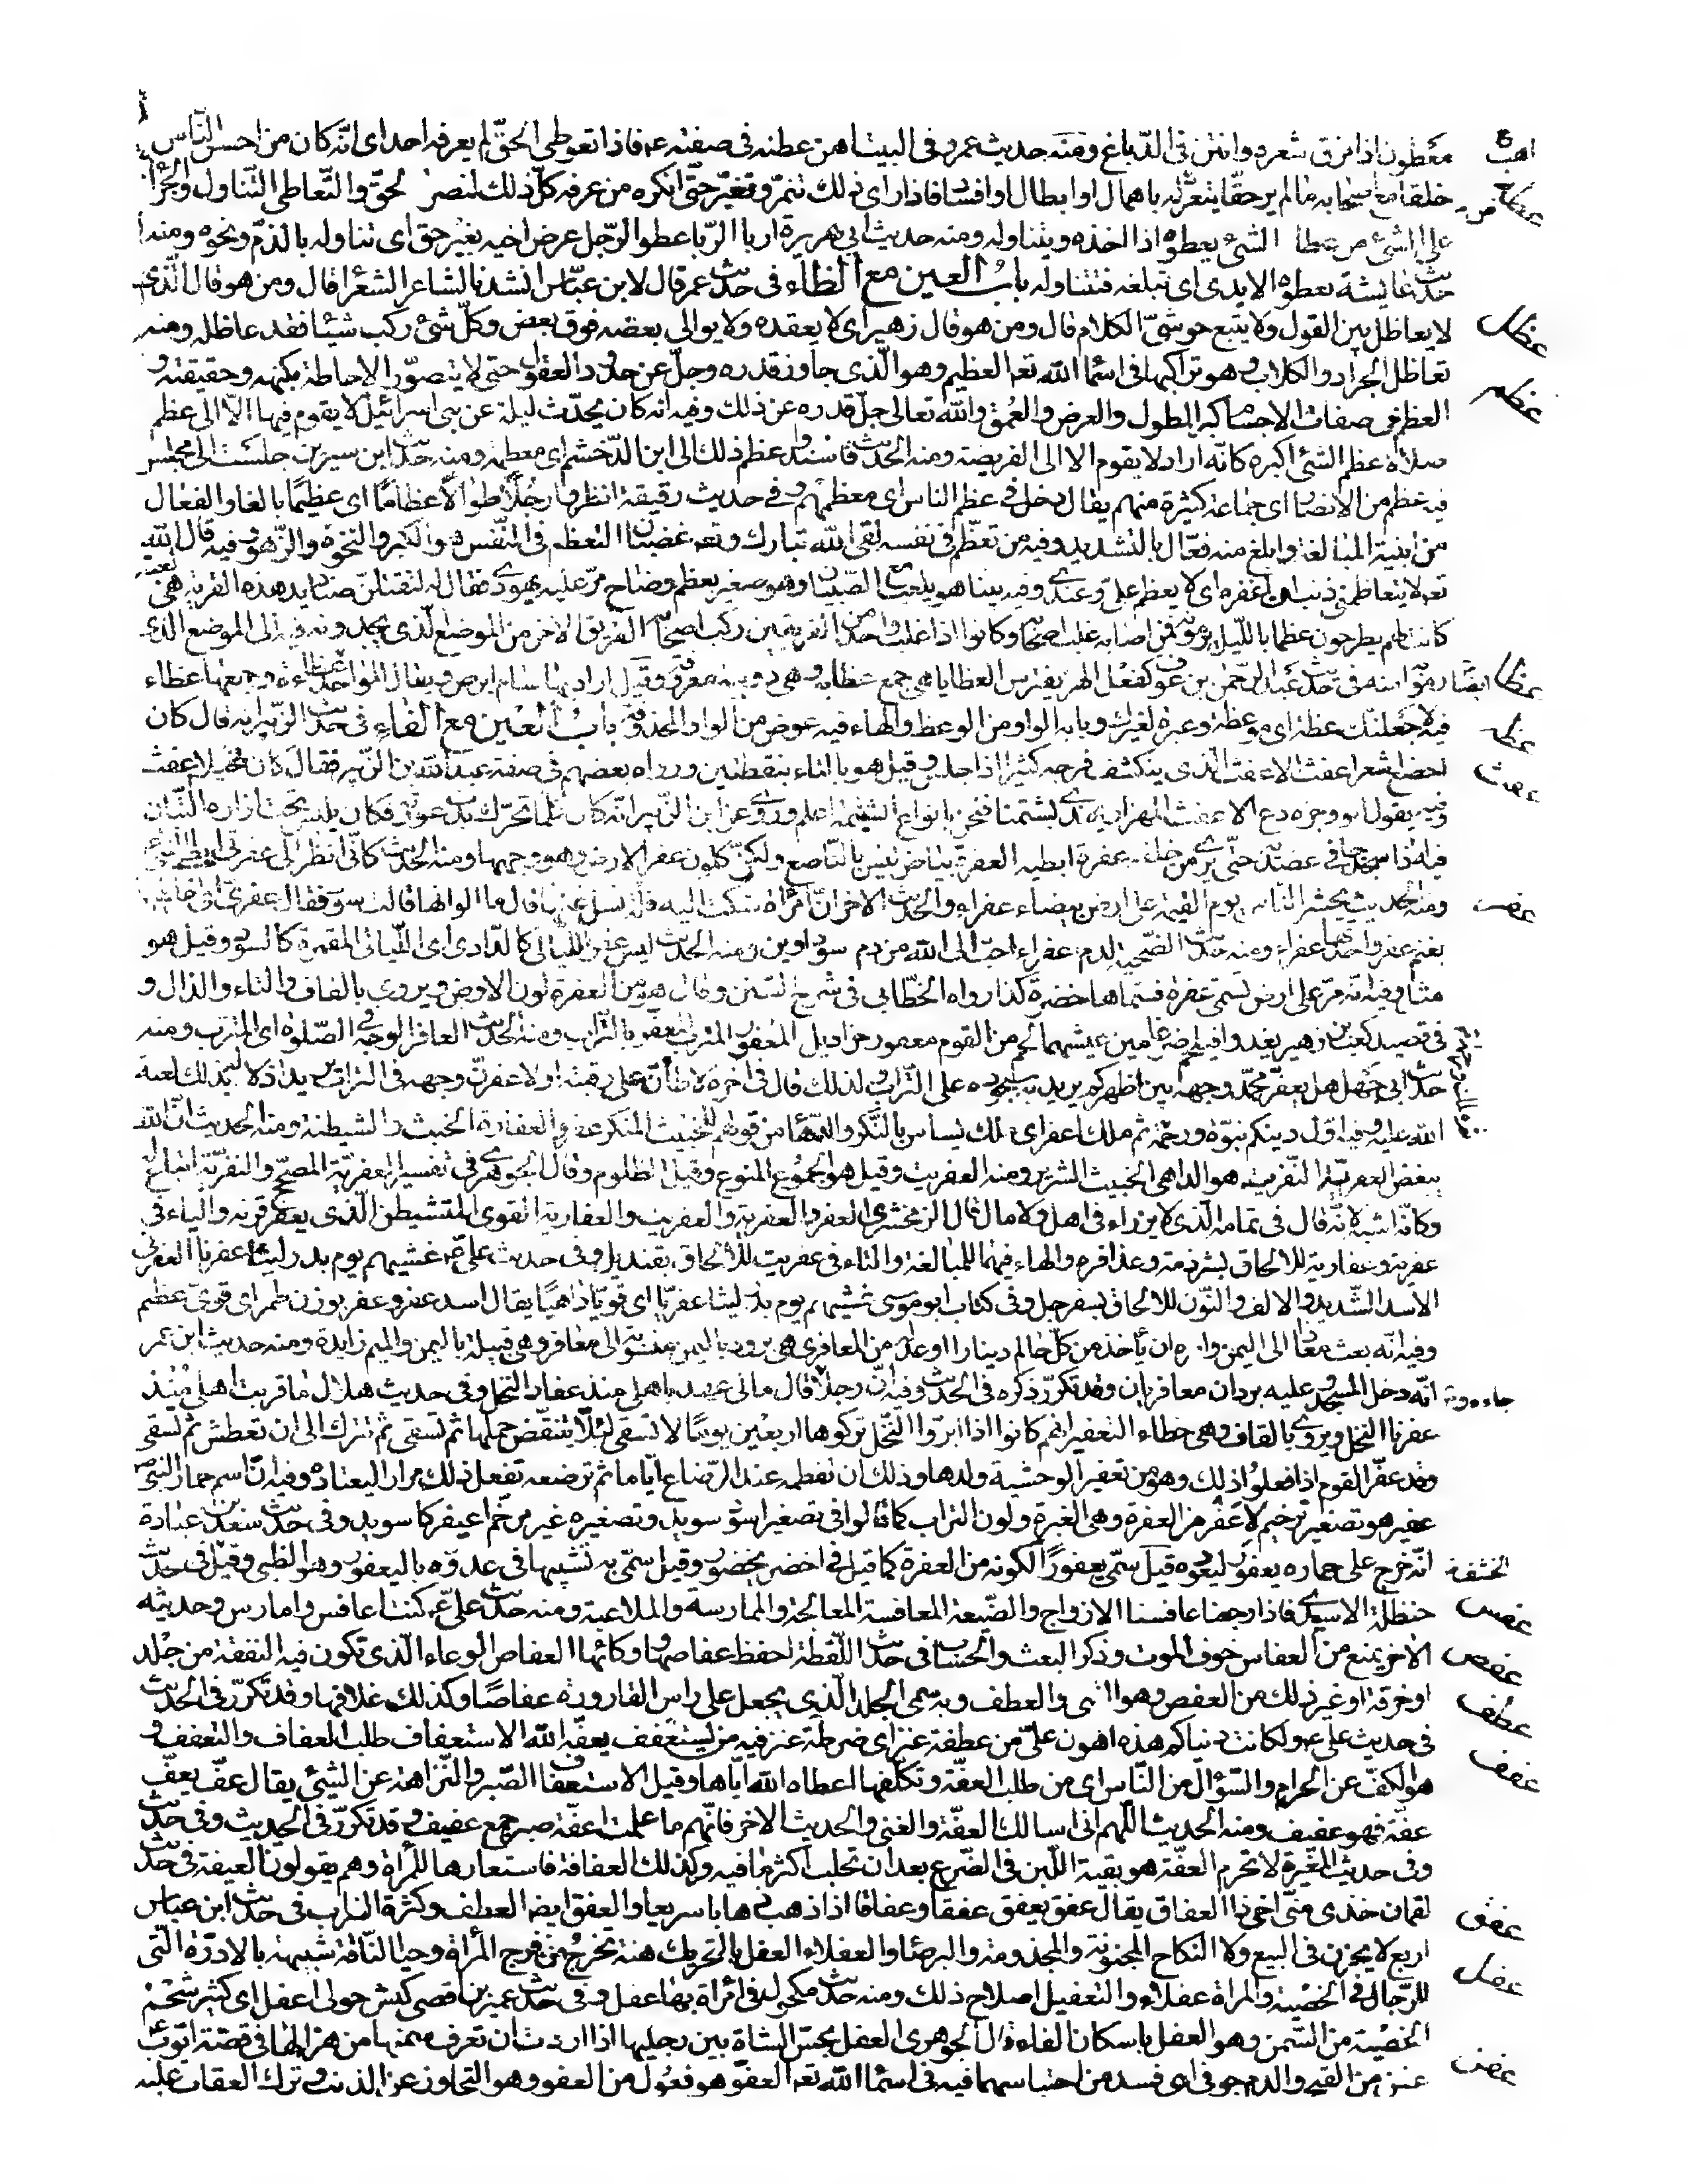 معطون اذا مرق شعره وانتن فى الدباغ ومنه حديث عمر وفى البيت اهب عطنه فى صفته ع فاذا تعوطى الحق لم يعرفه احد اى انه كان من احسن الناس
خلقا مع اصحابه ما لم ير حقا يتعرض له باهمال او ابطال او افساد فاذا راى ذلك تنمر وتغير حتى انكره من عرفه كل ذلك لنصر الحق والتعاطى التناول والجرأة
على الشئ من عطا الشئ يعطوه اذا اخذه ويتناوله ومنه حديث ابى هريرة اربا الربا عطو الرجل عرض اخيه بغير حق اى تناوله بالذم ونحوه ومنه
حديث عايشة لا تعطوه الايدى اى لا تبلغه فتتناوله باب العين مع الظاء فى حديث عمر قال لابن عباس انشدنا لشاعر الشعرا قال ومن هو قال الذى
لا يعاظل بين القول ولا يتبع حوشى الكلام قال ومن هو قال زهير اى لا يعقده ولا يوالى بعضه فوق بعض وكل شئ ركب شيئا فقد عاظله ومنه
تعاظل الجراد والكلاب وهو تراكبها فى اسما الله تعه العظيم وهو الذى جاوز قدره وجل عن حدود العقول حتى لا يتصور الاحاطة بكنهه وحقيقته و
العظم فى صفات الاجسام كبر الطول والعرض والعمق والله تعالى جل قدره عن ذلك وفيه انه كان يحدث ليلة عن بنى اسرائيل لا يقوم فيها الا الى عظم
صلاة عظم الشئ اكبره كانه اراد لا يقوم الا الى الفريضة ومنه الحديث فاسندوا عظم ذلك الى ابن الدخشم اى معظمه ومنه حديث ابن سيرين جلست الى مجلس
فيه عظم من الانصار اى جماعة كثيرة منهم يقال دخل فى عظم الناس اى معظمهم وفى حديث رقيقة انظروا رجلا طوالا عظاما اى عظيما بالغا والفعال
من ابنية المبالغة وابلغ منه فعال بالتشديد وفيه من تعظم فى نفسه لقى الله تبارك وتعه غضبان التعظم فى النفس هو الكبر والنخوة والزهو وفيه قال الله
تعه لا يتعاظمنى ذنب ان اغفره اى لا يعظم على وعندى وفيه بينا هو يلعب مع الصبيان وهو صغير بعظم وضاح مر عليه يهودى فقال له لتقتلن صناديد هذه القرية هى لعبة
كانت لهم يطرحون عظما بالليل يرمونه فمن اصابه غلب اصحابه وكانوا اذا غلب واحد من الفريقين ركب اصحابه الفريق الاخر من الموضع الذى يجدونه فيه الى الموضع الذى
رموا به منه فى حديث عبد الرحمن بن عوف كفعل الهر يفترس العظايا هى جمع عظاية وهى دويبة معروفة وقيل اراد بها سام ابرص ويقال للواحدة عظاءة وجمعها عظاء
فيه لاجعلنك عظة اى موعظة وعبرة لغيرك وبابه الواو من الوعظ والهاء فيه عوض من الواو المحذوفة باب العين مع الفاء فى حديث الزبير انه قال كان
اخضع اشعر اعفث الاعفث الذى ينكشف فرجه كثيرا اذا جلس وقيل هو بالتاء بنقطتين ورواه بعضهم فى صفة عبد الله بن الزبير فقال كان بخيلا اعفث
وفيه يقول ابو وجزة دع الاعفث المهذار يهذى بشتمنا فنحن بانواع الشتيمة اعلم وروى عن ابن الزبير انه كان كلما تحرك بدت عورته فكان يلبس تحت ازاره التبان
فيه اذا سجد جافى عضديه حتى يرى من خلفه عفرة ابطيه العفرة بياض ليس بالناصع ولكن كلون عفر الارض وهو وجهها ومنه الحديث كانى انظر الى عفرتى ابطى
ومنه الحديث يحشر الناس يوم القيمة على ارض بيضاء عفراء والحديث الاخر ان امراة شكت اليه قلة نسل غنمها قال ما الوانها قالت سود فقال عفرى
بغنم عفر واحدتها عفراء ومنه حديث الضحية لدم عفراء احب الى الله من دم سوداوين ومنه الحديث ليس عفر الليالى كالدادى اى الليالى المقمرة كالسود وقيل هو
مثل وفيه انه مر على ارض تسمى عفرة فسماها خضرة كذا رواه الخطابى فى شرح السنن وقال هو من العفرة لون الارض ويروى بالقاف والثاء والذال و
فى قصيد كعب بن زهير يغدو فيلحم ضرغامين عيشهما لحم من القوم معفور خراديل المعفور المترب المعفر بالتراب ومنه الحديث العافر الوجه فى الصلوة اى المترب ومنه
حديث ابى جهل هل يعفر محمد وجهه بين اظهركم يريد به سجوده على التراب ولذلك قال فى اخره لاطأن على رقبته او لاعفرن وجهه فى التراب يريد اذلاله لعنه
الله عليه وفيه اول دينكم نبوة ورحمة ثم ملك اعفر اى ملك يساس بالنكر والدهاء من قولهم للخبيث المنكر عفر والعفارة الخبث والشيطنة ومنه الحديث ان الله
يبغض العفرية النفرية هو الداهى الخبيث الشرير ومنه العفريت وقيل هو الجموع المنوع وقيل الظلوم وقال الجوهرى فى تفسير العفرية المصحح والنفرية اتباع له
وكانه اشبه لانه قال فى تمامه الذى لا يرزاء فى اهل ولا مال قال الزمخشرى العفر والعفرية والعفريت والعفارية القوى المتشيطن الذى يعفر قرنه والياء فى
عفرية وعفارية للالحاق بشرذمة وعذافرة والهاء فيهما للمبالغة والتاء فى عفريت للالحاق بقنديل وفى حديث على ع غشيهم يوم بدر ليثا عفريا العفرنى
الاسد الشديد والالف والنون للالحاق بسفرجل وفى كتاب ابو موسى غشيهم يوم بدر ليثا عفريا اى قويا داهيا يقال اسد عفر وعفر بوزن طمر اى قوى عظيم
وفيه انه بعث معاذا الى اليمن وامره ان يأخذ من كل حالم دينارا او عدله من المعافرى هى برود باليمن منسوبة الى معافر وهى قبيلة باليمن والميم زايدة ومنه حديث ابن عمر
انه دخل المسجد وعليه بردان معافريان وقد تكرر ذكره فى الحديث وفيه ان رجلا جاءه قال مالى عهد باهلى منذ عفار النخل وفى حديث هلال ما قربت اهلى منذ
عفرنا النخل ويروى بالقاف وهى خطاء التعفير انهم كانوا اذا ابروا النخل تركوها اربعين يوما لا تسقى لئلا ينتقض حملها ثم تسقى ثم تترك الى ان تعطش ثم تسقى
وقد عفر القوم اذا فعلوا ذلك وهو من تعفير الوحشية ولدها وذلك ان تفطمه عند الرضاع اياما ثم ترضعه تفعل ذلك مرارا ليعتاده وفيه ان اسم حمار النبى ص
عفير هو تصغير ترخيم لاعفر من العفرة وهى الغبرة ولون التراب كما قالوا فى تصغير اسود سويد وتصغيره غير مرخم اعيفر كاسويد وفى حديث سعد بن عبادة
انه خرج على حماره يعفور ليعوده قيل سمى يعفورا لكونه من العفرة كما قيل فى اخضر يخضور وقيل سمى به تشبيها فى عدوه باليعفور وهو الظبى وقيل الخشف فى حديث
حنظلة الاسيدى فاذا رجعنا عافسنا الازواج والضيعة المعافسة المعالجة والممارسة والملاعبة ومنه حديث على ع كنت اعافس وامارس وحديثه
الاخر يمنع من العفاس خوف الموت وذكر البعث والحساب فى حديث اللقطة احفظ عفاصها ووكائها العفاص الوعاء الذى تكون فيه النفقة من جلد
او خرقة او غير ذلك من العفص وهو الثنى والعطف وبه سمى الجلد الذى يجعل على راس القارورة عفاصا وكذلك غلافها وقد تكرر فى الحديث
فى حديث على ع ولكانت دنياكم هذه اهون على من عطفة عنز اى ضرطة عنز فيه من يستعفف يعفه الله الاستعفاف طلب العفاف والتعفف و
هو الكف عن الحرام والسؤال من الناس اى من طلب العفة وتكلفها اعطاه الله اياها وقيل الاستعفاف الصبر والنزاهة عن الشئ يقال عف يعف
عفة فهو عفيف ومنه الحديث اللهم انى اسالك العفة والغنى والحديث الاخر فانهم ما علمت اعفة صبر جمع عفيف وقد تكرر فى الحديث وفى حديث
وفى حديث المغيرة لا تحرم العفة هو بقية اللبن فى الضرع بعد ان تحلب اكثر ما فيه وكذلك العفافة فاستعارها للمراة وهم يقولون العيفة فى حديث
لقمان خذى منى اخى ذا العفاق يقال عفق يعفق عفقا وعفاقا اذا ذهب ذهابا سريعا والعفق ايضا العطف وكثرة الضراب فى حديث ابن عباس
اربع لا يجزن فى البيع ولا النكاح المجنونة والمجذومة والبرصاء والعفلاء العفل بالتحريك هنة تخرج من فرج المرأة وحيا الناقة شبيهة بالادرة التى
للرجال فى الخصية والمراة عفلاء والتعفيل اصلاح ذلك ومنه حديث مكحول فى امرأة بها عفل وفى حديث عمير بن افصى كبش حولى اعفل اى كثير شحم
الخصية من السمن وهو العفل باسكان الفاء قال الجوهرى العفل مجس الشاة بين رجليها اذا اردت ان تعرف سمنها من هزالها فى قصة ايوب
عفن من القيح والدم جوفى اى فسد من احتباسهما فيه فى اسما الله تعه العفو هو فعول من العفو وهو التجاوز عن الذنب وترك العقاب عليه
عظل
عظم
عظا
عظه
عفث
عفر
عفس
عفص
عطف
عفف
عفق
عفل
عفن